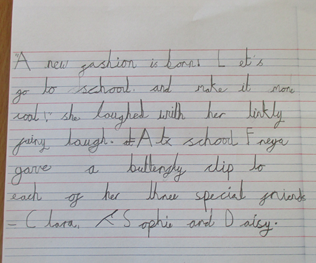 A new fashion is born! Let's
go to school and make it more
cool", she laughed with her tinkly
fairy laugh. At school Freya
gave a butterfly clip to
each of her three special friends
- Clara, Sophie and Daisy.